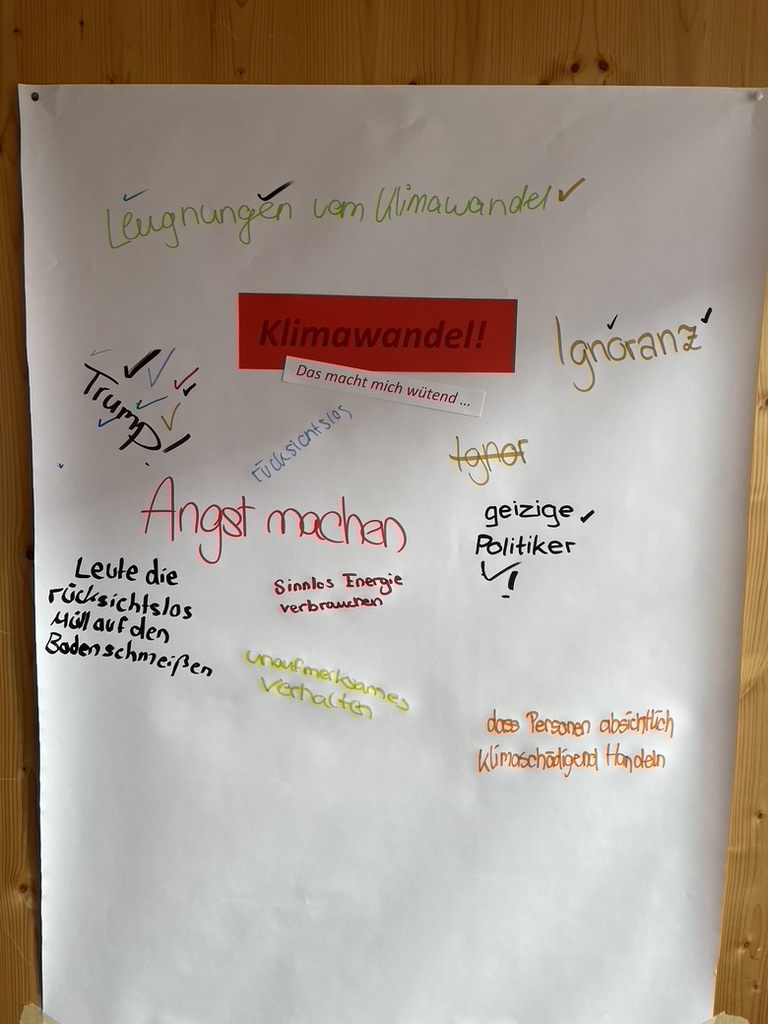 Leugnungen vom Klimawandel
Klimawandel!
Das macht mich wütend ...
Ignoranz
Trump!
rücksichtslos
Ignor
Angst machen
geizige
Politiker
!
Leute die
rücksichtslos
Müll auf den
Boden schmeißen
Sinnlos Energie
verbrauchen
unaufmerksames
Verhalten
dass Personen absichtlich
Klimaschädigend Handeln